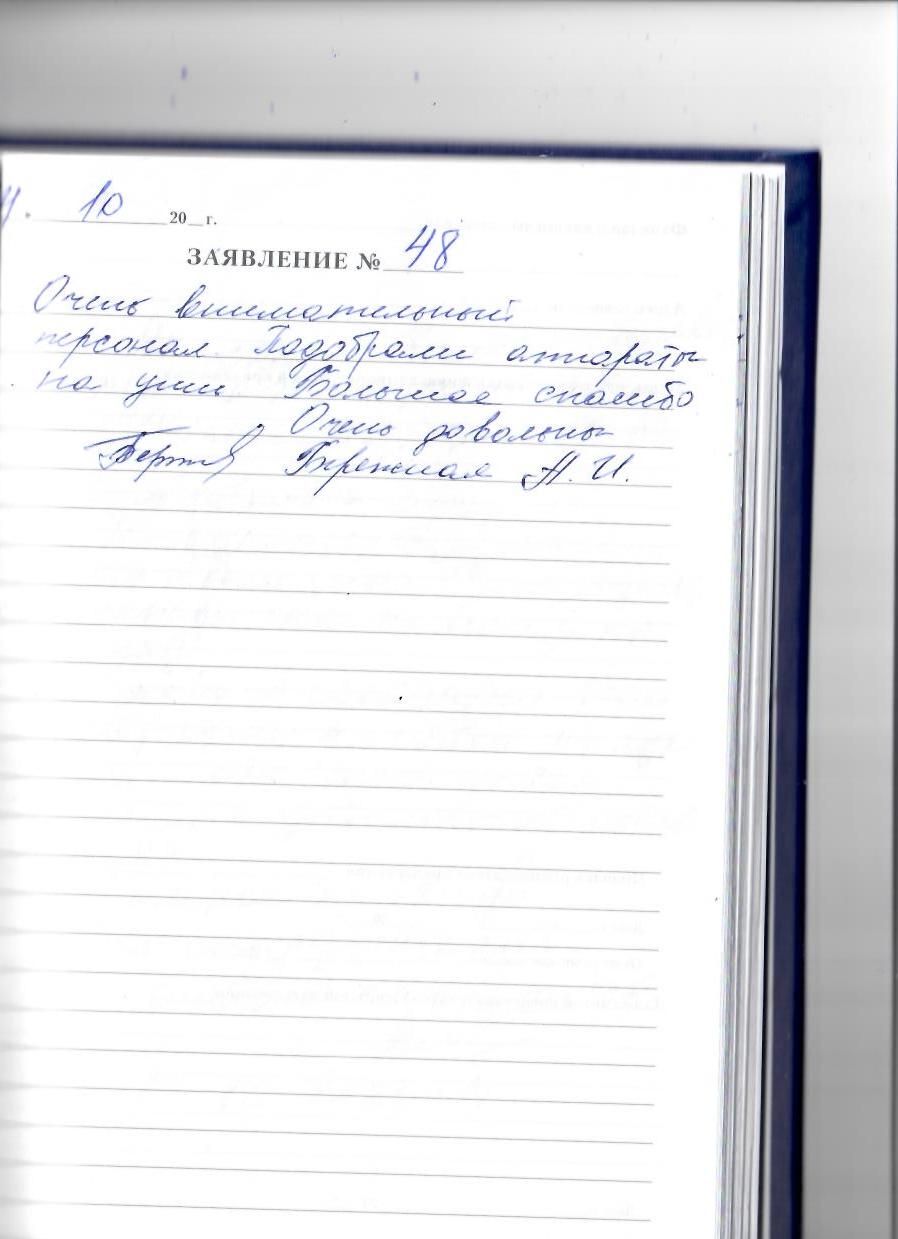 10 20 г.
ЗАЯВЛЕНИЕ № 48
Очень внимательный
персонал. Подобрали аппараты
на уши Большое спасибо
Очень довольны
Бережная А. И.